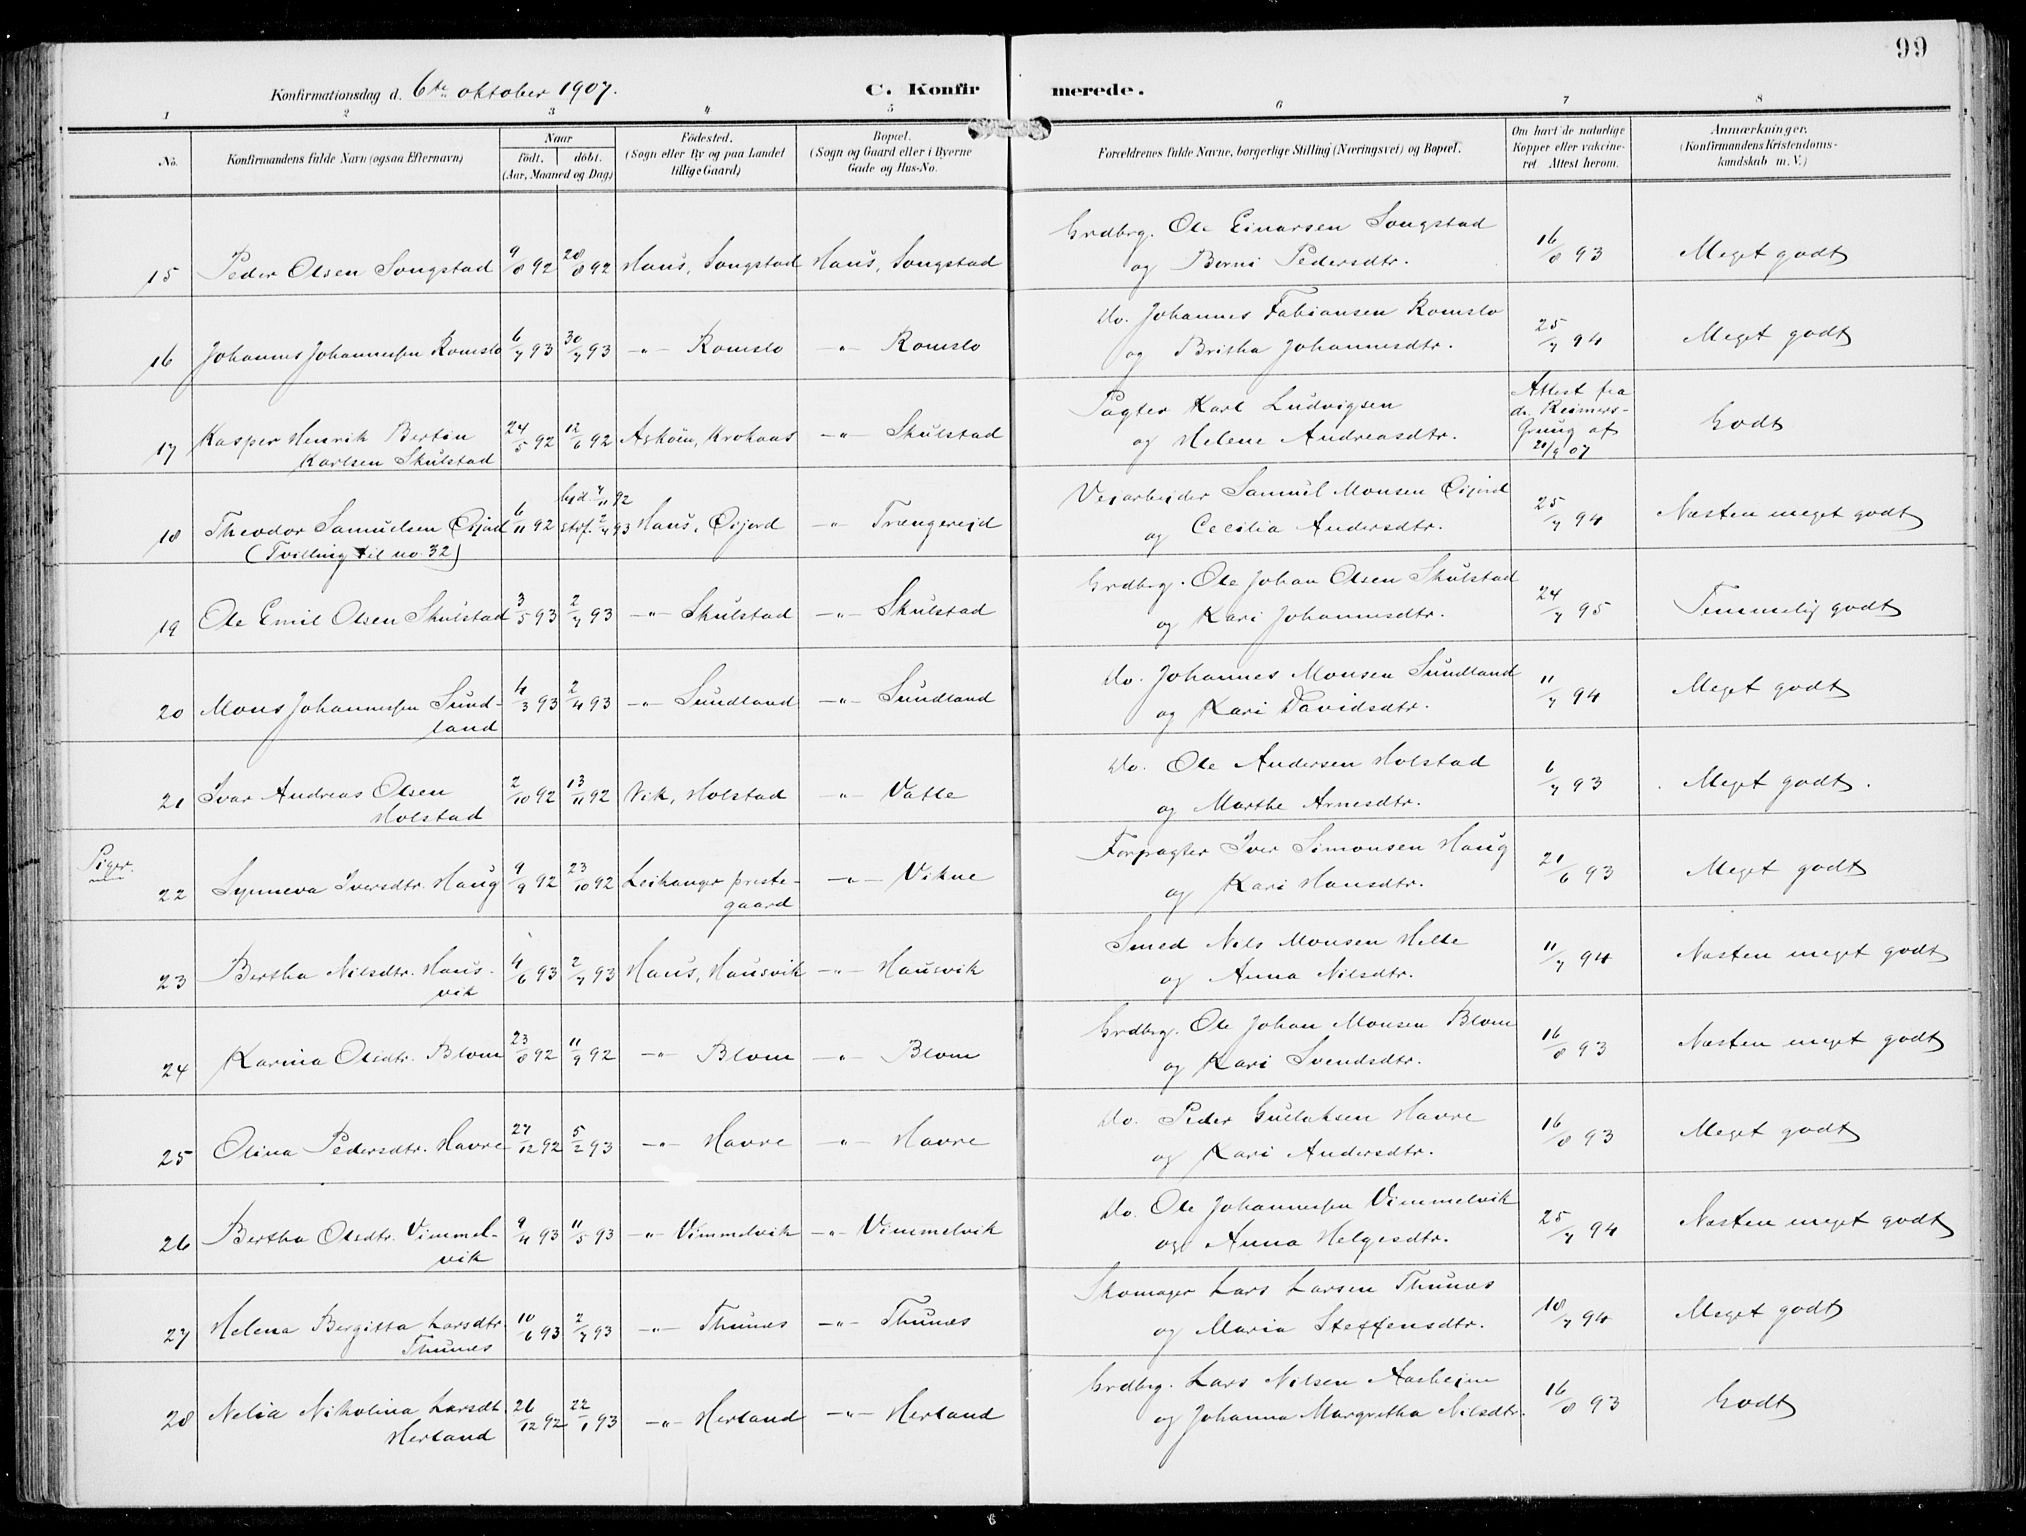 99
Konfirmationsdag d. 6te oktober 1907. C. Konfirmerede.
1 2 3 4 5 6 7 8
No. Konfirmandens fulde Navn (ogsaa Efternavn) Naar født. døbt. (Aar, Maaned og Dag) Fødested. (Sogn eller By og paa Landet tillige Gaard) Bopæl. (Sogn og Gaard eller i Byerne Gade og Hus-No. Forældrenes fulde Navne, borgerlige Stilling (Næringsvei) og Bopæl. Om havt de naturlige Kopper eller vakcineret. Attest herom. Anmærkninger. (Konfirmandens Kristendomskundskab m. V.)
Grdbrg. Ole Einarsen Songstad
15 Peder Olsen Songstad 9/8 92 28/8 92 Haus, Songstad Haus, Songstad og Berni Pedersdtr. 16/8 93 Meget godt
do. Johannes Fabiansen Romslo
16 Johannes Johannessen Romslo 6/7 93 30/7 93 -"- Romslo -"- Romslo og Britha Johannesdtr. 25/7 94 Meget godt
Pagter Karl Ludvigsen Attest fra dr. Reimers-
17 Kasper Henrik Bertin 24/5 92 12/6 92 Askøen, Krohaas -"- Skulstad og Helene Andreasdtr. Grung af 21/9 07 Godt
Karlsen Skulstad
hjd 7/11 92 Veiarbeider Samuel Monsen Øijord
18 Theodor Samuelsen Øijord 6/11 92 stf. 2/7 93 Haus, Øijord -"- Trængereid og Cecilia Andersdtr. 25/7 94 Næsten meget godt
(Tvilling til no. 32)
Grdbrg. Ole Johan Olsen Skulstad
19 Ole Emil Olsen Skulstad 3/5 93 2/7 93 -"- Skulstad -"- Skulstad og Kari Johannesdtr. 24/7 95 Temmelig godt
do. Johannes Monsen Sundland
20 Mons Johannessen Sund- 4/3 93 2/4 93 -"- Sundland -"- Sundland og Kari Davidsdtr. 11/7 94 Meget godt
land
do. Ole Andersen Holstad
21 Ivar Andreas Olsen 2/10 92 13/11 92 Vik, Holstad -"- Valle og Marthe Arnesdtr. 6/7 93 Meget godt.
Holstad
Piger. Forpagter Iver Simonsen Haug
22 Synneva Iversdtr. Haug 9/9 92 23/10 92 Leikanger preste- -"- Vikne og Kari Hansdtr. 21/6 93 Meget godt
gaard
Smed Nils Monsen Helle
23 Bertha Nilsdtr. Haus- 4/6 93 2/7 93 Haus, Hausvik -"- Hausvik og Anna Nilsdtr. 11/7 94 Næsten meget godt
vik
Grdbrg. Ole Johan Monsen Blom
24 Karina Olsdtr. Blom 23/8 92 11/9 92 -"- Blom -"- Blom og Kari Svendsdtr. 16/8 93 Næsten meget godt
do. Peder Gullaksen Havre
25 Olina Pedersdtr. Havre 27/12 92 5/2 93 -"- Havre -"- Havre og Kari Andersdtr. 16/8 93 Meget godt
do. Ole Johannessen Vimmelvik
26 Bertha Olsdtr. Vimmel- 9/4 93 11/5 93 -"- Vimmelvik -"- Vimmelvik og Anna Helgesdtr. 25/7 94 Næsten meget godt
vik
Skomager Lars Larsen Thunæs
27 Helena Bergitta Larsdtr. 10/6 93 2/7 93 -"- Thunæs -"- Thunæs og Maria Steffensdtr. 18/7 94 Meget godt
Thunæs
Grdbrg. Lars Nilsen Aasheim
28 Nelia Nikolina Larsdt. 26/12 92 22/1 93 -"- Herland -"- Herland og Johanna Margretha Nilsdtr. 16/8 93 Godt
Herland